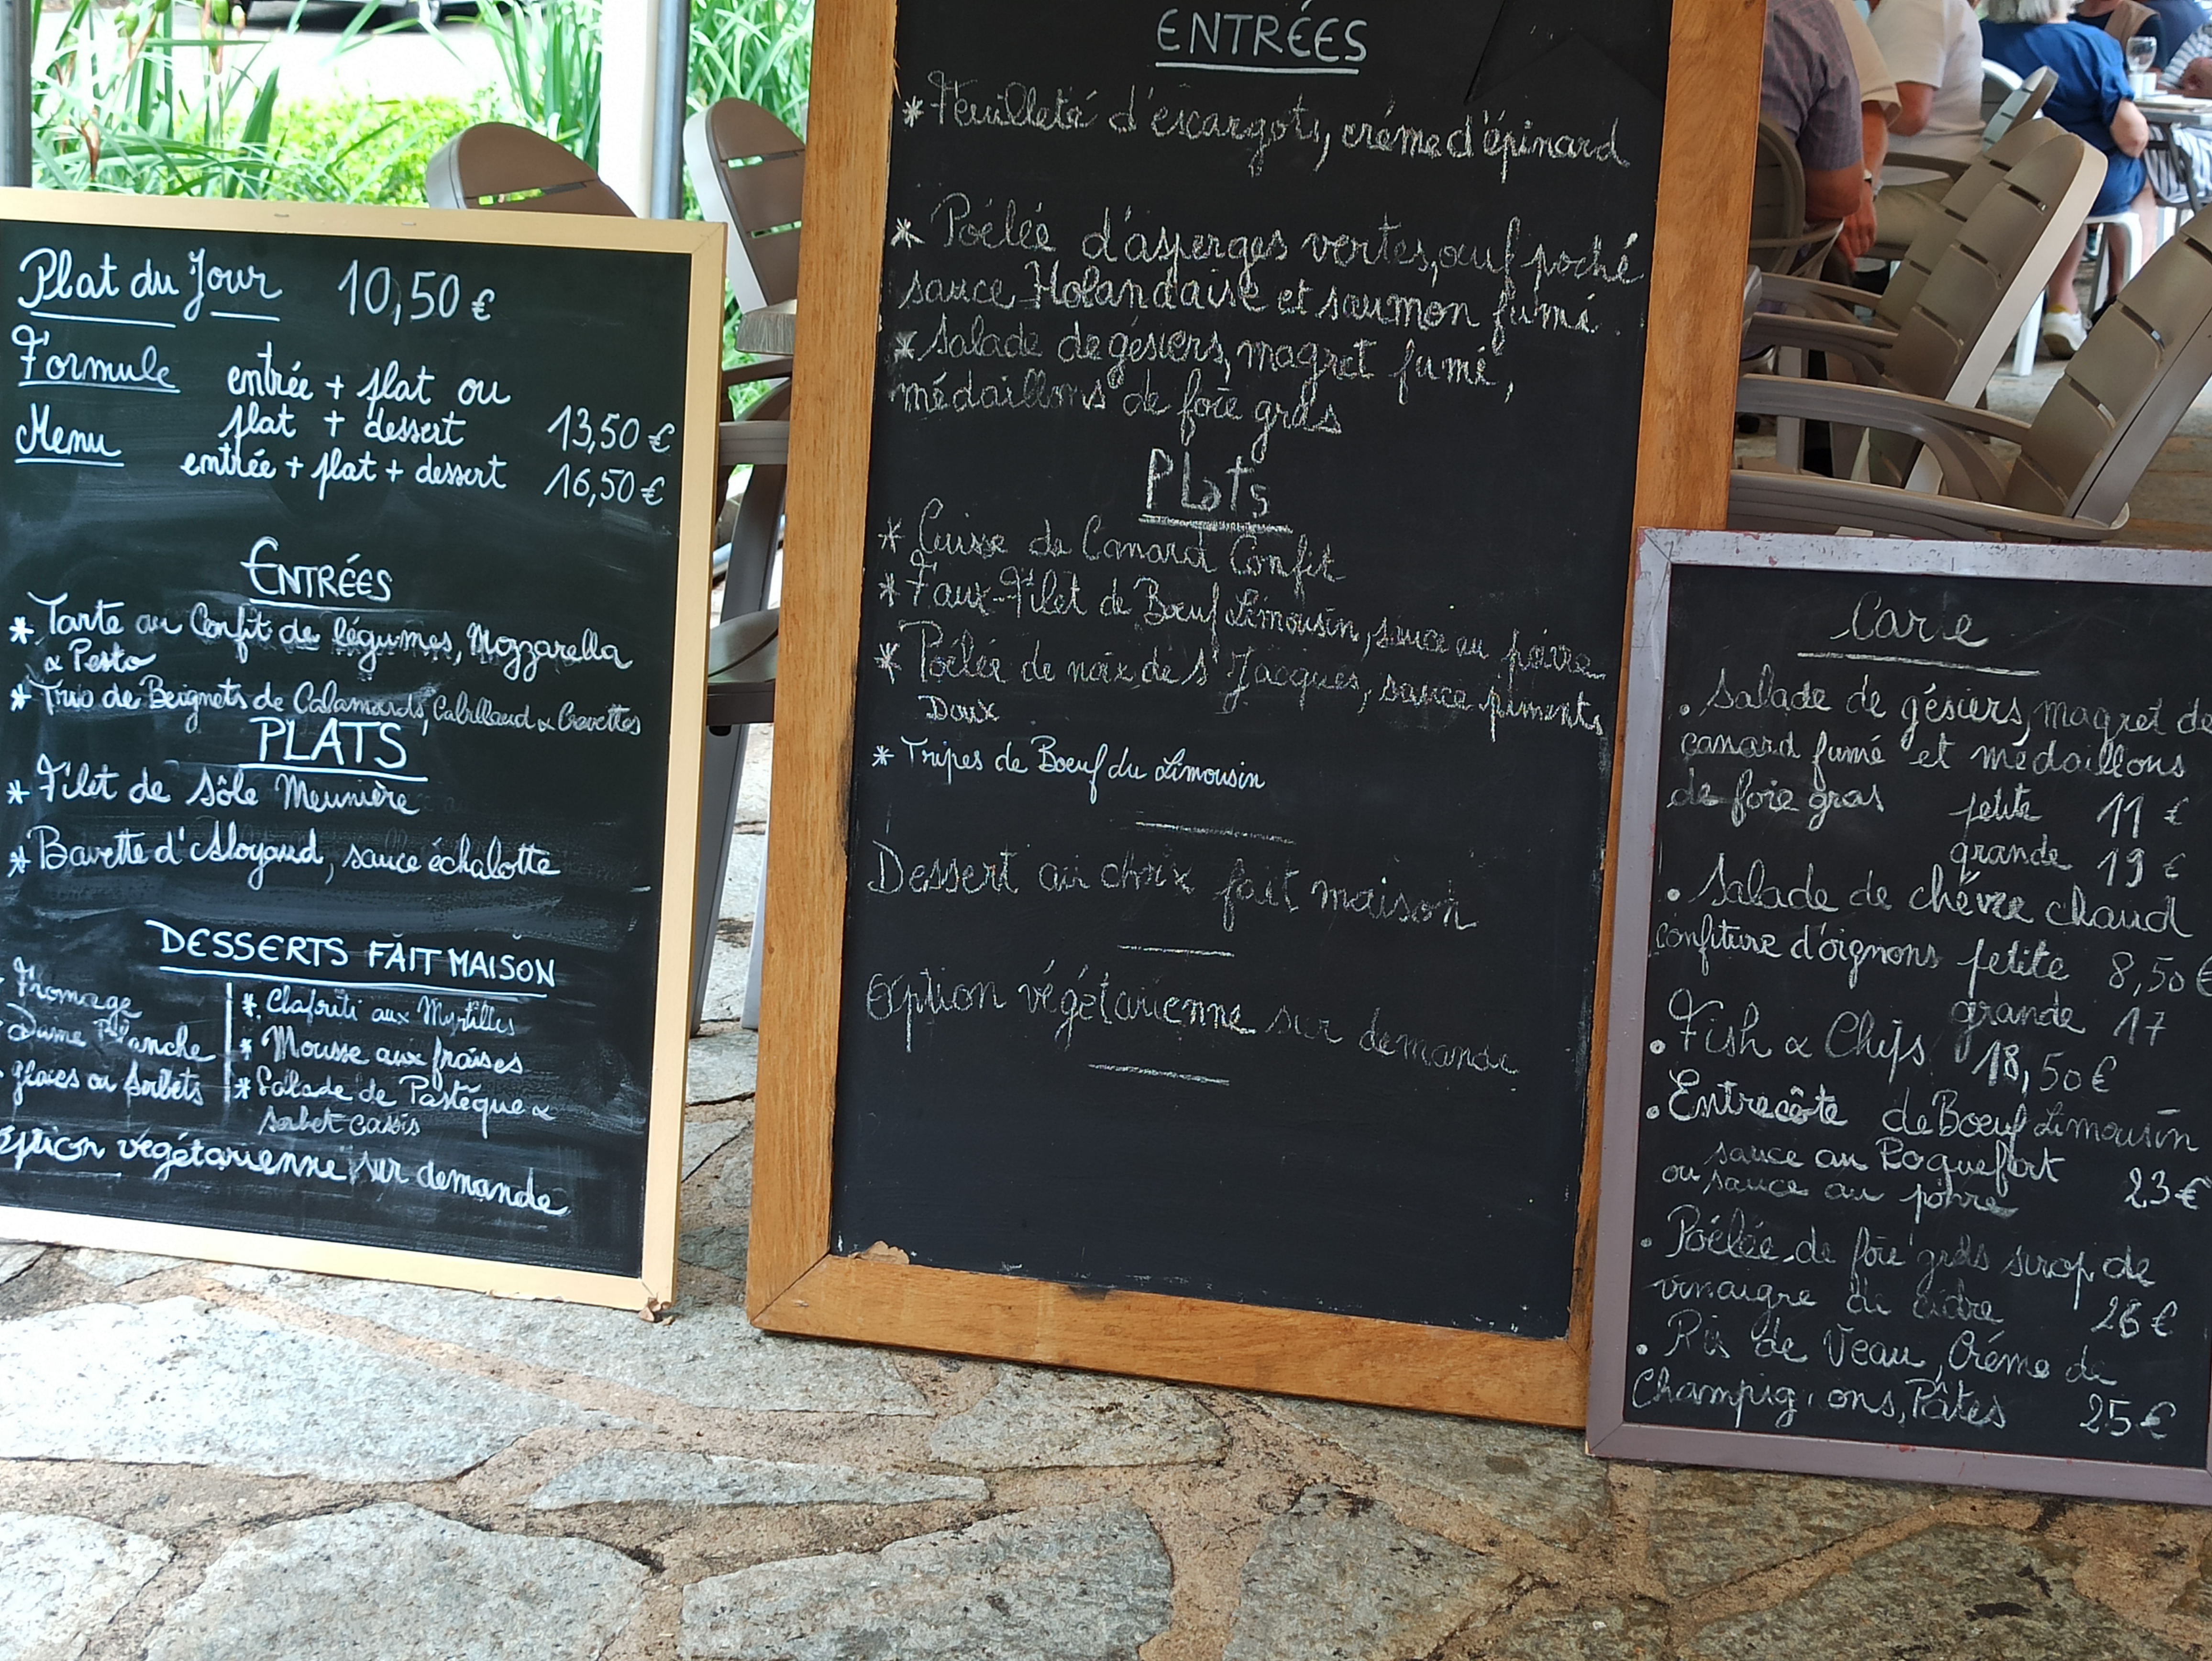 Plat du Jour 10,50 €
Formule entrée + plat ou
plat + dessert 13,50 €
Menu entrée + plat + dessert 16,50 €
ENTRÉES
* Tarte au Confit de légumes, Mozzarella
& Pesto
* Trio de Beignets de Calamards, Cabillaud & Crevettes
PLATS
* Filet de Sôle Meunière
* Bavette d'Aloyaud, sauce échalotte
DESSERTS FAIT MAISON
Fromage
Dame Blanche
glaces ou sorbets
* Clafouti aux Myrtilles
* Mousse aux fraises
* Salade de Pastèque &
sorbet cassis
Option végétarienne sur demande
ENTRÉES
* Feuilleté d'escargots, crème d'épinard
* Poélée d'asperges vertes, œuf poché
sauce Holandaise et saumon fumé.
* Salade de gésiers, magret fumé,
médaillons de foie gras
Plats
* Cuisse de Canard Confit
* Faux-Filet de Bœuf Limousin, sauce au poivre
* Poêlée de noix de St Jacques, sauce piments
Doux
* Tripes de Boeuf du Limousin
Dessert au choix fait maison
Option végétarienne sur demande
Carte
. Salade de gésiers, magret de
canard fumé et médaillons
de foie gras petite 11 €
grande 19 €
. Salade de chèvre chaud
confiture d'oignons petite 8,50 €
grande 17
. Fish & Chips 18,50 €
. Entrecôte de Boeuf Limousin
sauce au Roquefort
ou sauce au poivre 23 €
. Poélée de foie gras sirop de
vinaigre de cidre 26 €
. Ris de Veau, Crème de
Champig ons, Pâtes 25 €